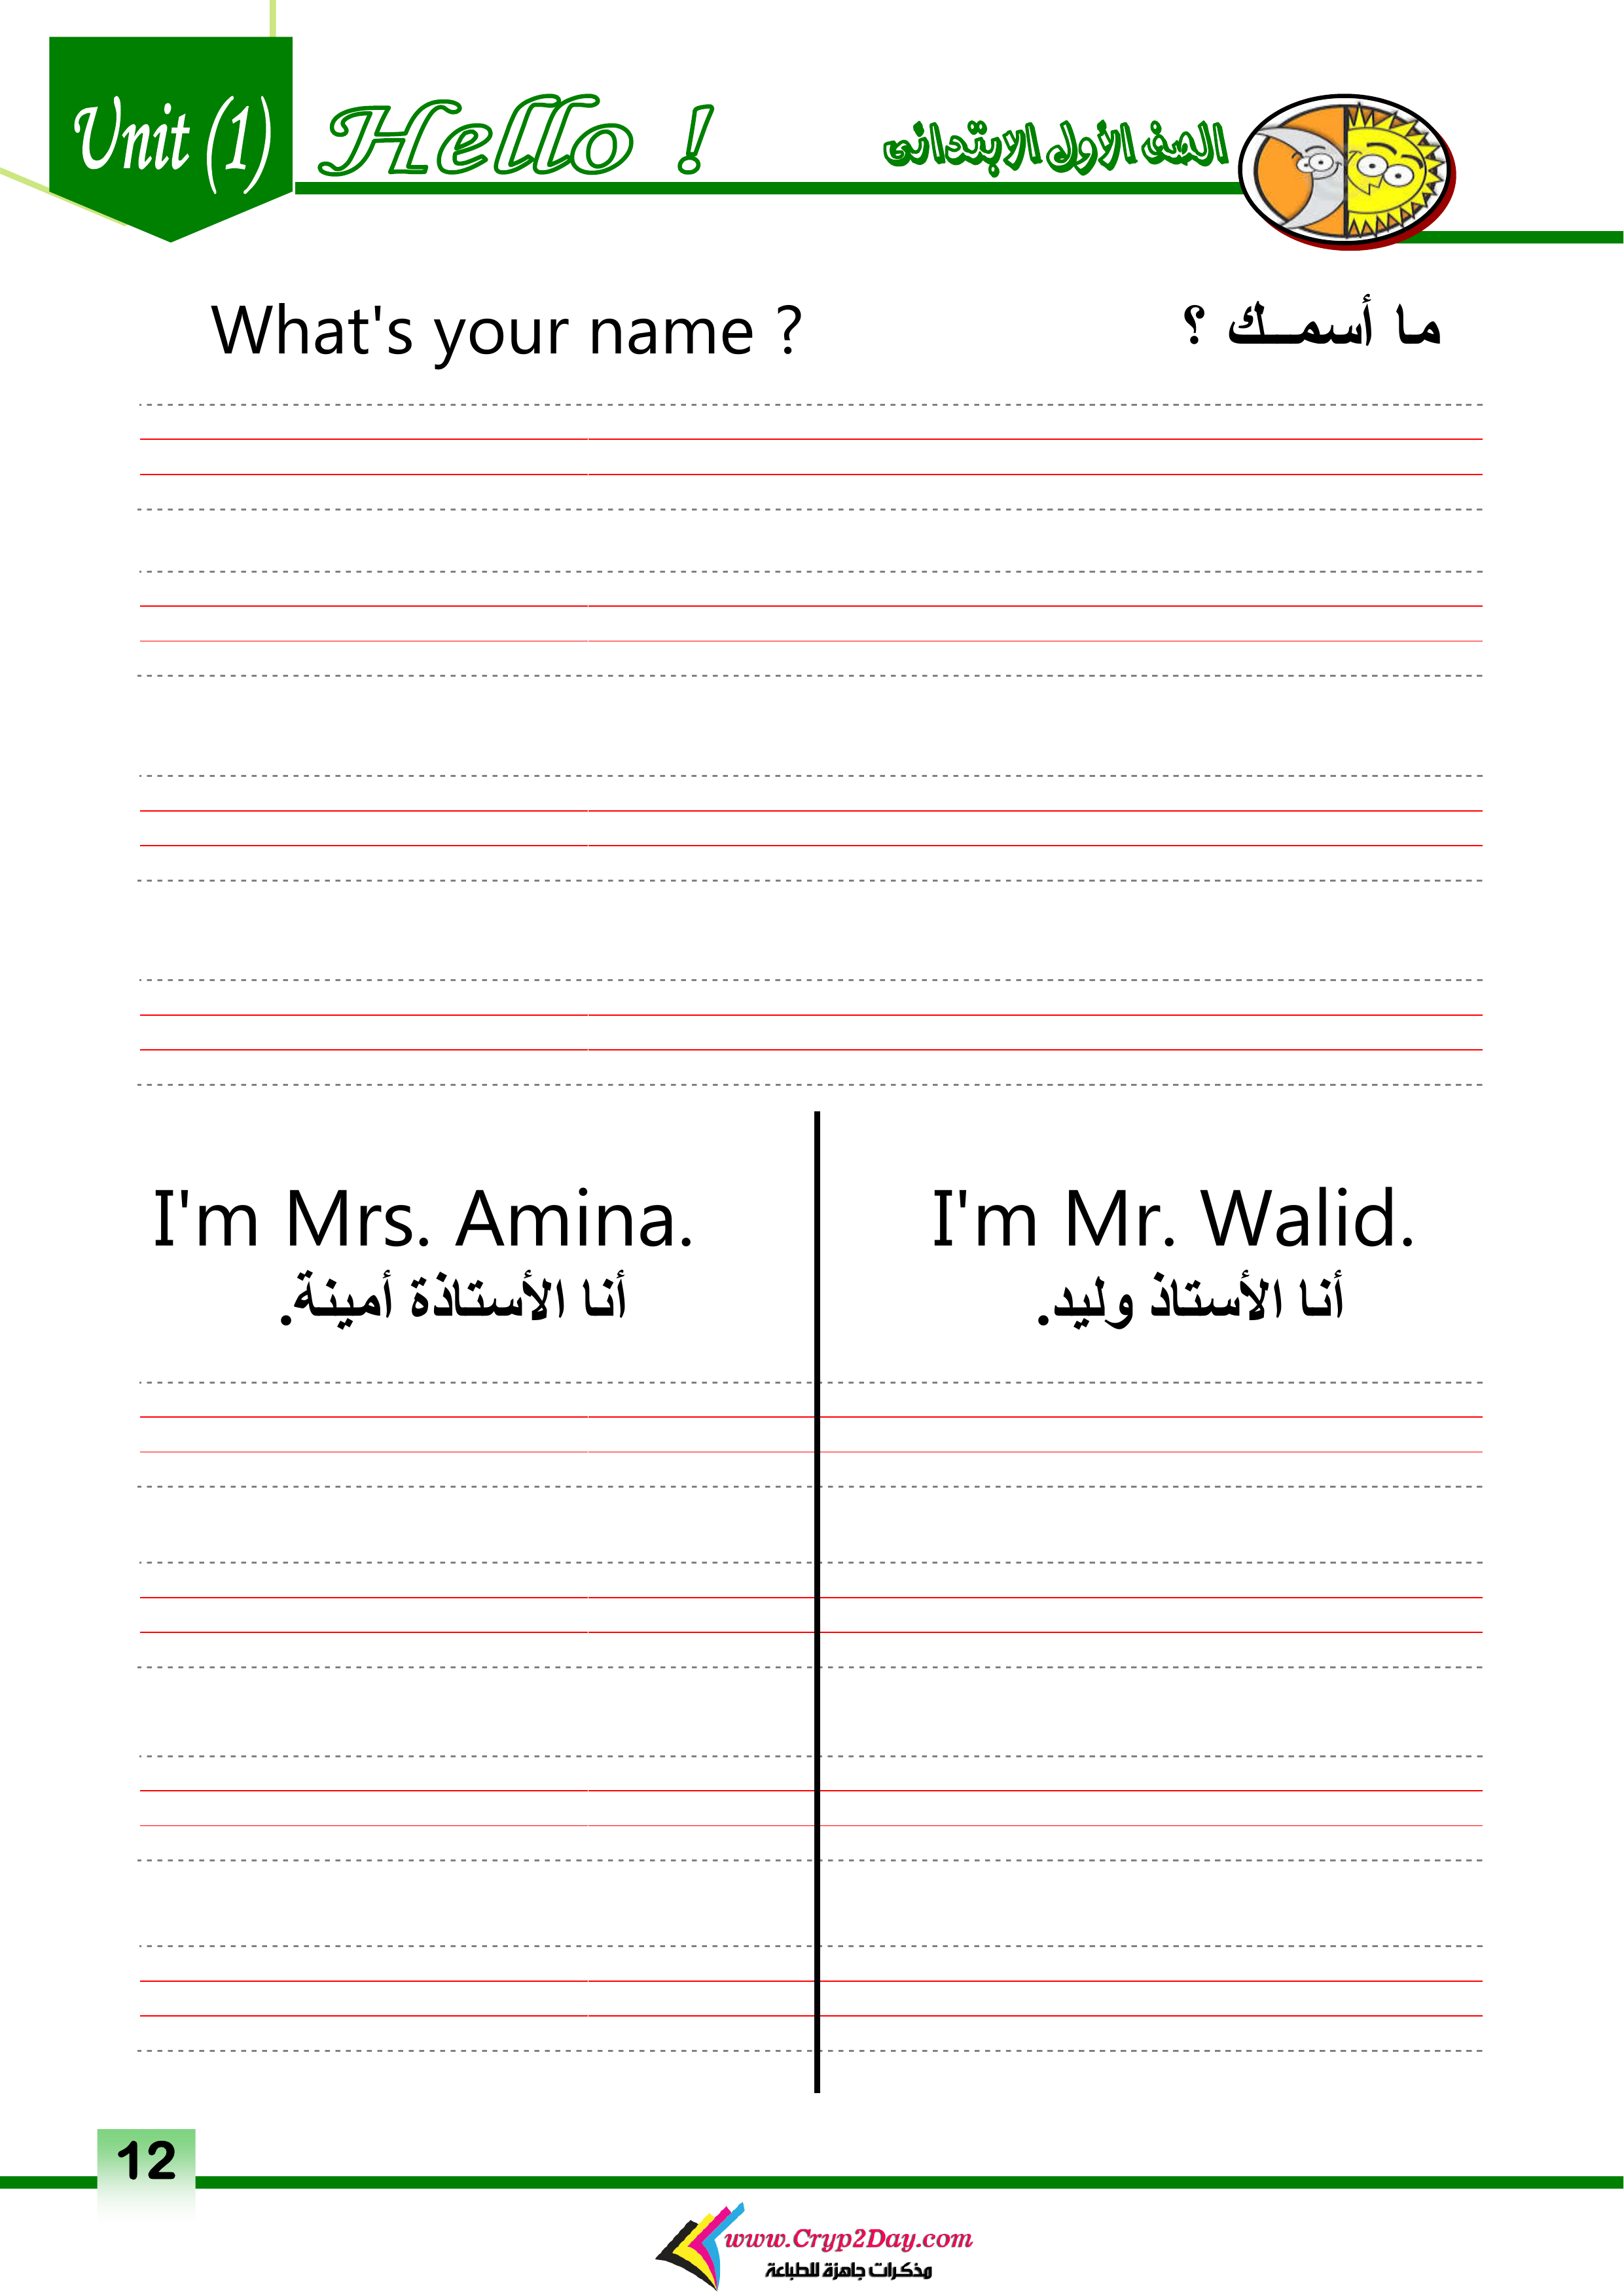 Unit (1)
Hello !
الصف الأول الابتدائى
What's your name ?
ما أسمـــك ؟
I'm Mrs. Amina.
أنا الأستاذة أمينة.
I'm Mr. Walid.
أنا الأستاذ وليد.
12
www.Cryp2Day.com
مذكرات جاهزة للطباعة